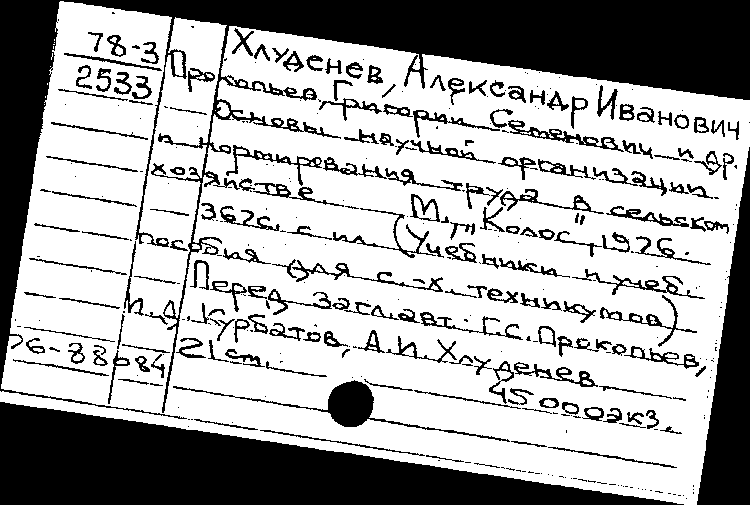 78-3 Хлуденев, Александр Иванович
2533 Прокопьев, Григорий Семенович и др.
Основы научной организации
и нормирования труда в сельском
хозяйстве. М., "Колос", 1976.
367с. с ил. (Учебники и учеб.
пособия для с.-х. техникумов)
Перед загл. авт.: Г.С. Прокопьев,
П.Д. Курбатов, А.И. Хлуденев.
76-88084 21 cm. 45000экз.